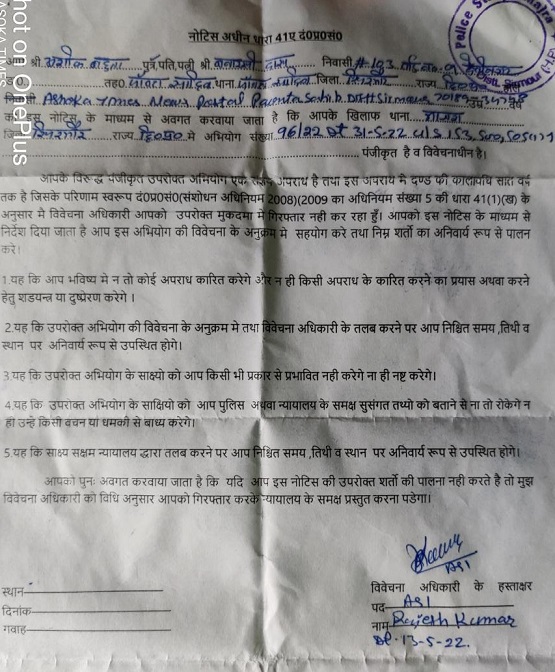 नोटिस अधीन धारा 41ए द०प्र०सं०
श्री अशोक पुत्र,पति,पत्नी श्री निवासी # 193
तह० थाना जिला सिरमौर राज्य
Ashoka Times News Portal Paonta Sahib Distt Sirmaur
को इस नोटिस के माध्यम से अवगत करवाया जाता है कि आपके खिलाफ थाना माजरा
जिला सिरमौर राज्य हि०प्र० मे अभियोग संख्या 96/22 Dt 31-5-22 u/s 153, 500, 505(1)
पंजीकृत है व विवेचनाधीन है।
आपके विरुद्ध पंजीकृत उपरोक्त अभियोग एक अपराध है तथा इस अपराध मे दण्ड की कालावधि सात वर्ष
तक है जिसके परिणाम स्वरूप दं०प्र०सं०(संशोधन अधिनियम 2008)(2009 का अधिनियम संख्या 5 की धारा 41(1)(ख) के
अनुसार मे विवेचना अधिकारी आपको उपरोक्त मुकदमा में गिरफ्तार नही कर रहा हूँ। आपको इस नोटिस के माध्यम से
निर्देश दिया जाता है आप इस अभियोग की विवेचना के अनुक्रम मे सहयोग करे तथा निम्न शर्तो का अनिवार्य रूप से पालन
करे।
1.यह कि आप भविष्य मे न तो कोई अपराध कारित करेगे और न ही किसी अपराध के कारित करने का प्रयास अथवा करने
हेतु शडयन्त्र या दुष्प्रेरण करेगे ।
2.यह कि उपरोक्त अभियोग की विवेचना के अनुक्रम मे तथा विवेचना अधिकारी के तलब करने पर आप निश्चित समय ,तिथी व
स्थान पर अनिवार्य रूप से उपस्थित होगे।
3.यह कि उपरोक्त अभियोग के साक्ष्यो को आप किसी भी प्रकार से प्रभावित नही करेगे ना ही नष्ट करेगे।
4.यह कि उपरोक्त अभियोग के साक्षियो को आप पुलिस अथवा न्यायालय के समक्ष सुसंगत तथ्यो को बताने से ना तो रोकेगे न
ही उन्हे किसी वचन या धमकी से बाध्य करेगे।
5.यह कि साक्ष्य सक्षम न्यायालय द्धारा तलब करने पर आप निश्चित समय ,तिथी व स्थान पर अनिवार्य रूप से उपस्थित होगे।
आपको पुनः अवगत करवाया जाता है कि यदि आप इस नोटिस की उपरोक्त शर्तो की पालना नही करते है तो मुझ
विवेचना अधिकारी को विधि अनुसार आपको गिरफ्तार करके न्यायालय के समक्ष प्रस्तुत करना पडेगा।
ASI
विवेचना अधिकारी के हस्ताक्षर
स्थान
पद ASI
दिनांक
नाम Rajesh Kumar
गवाह
Dt-13-5-22.
Police
hot on OnePlus
ASOKA TIMES